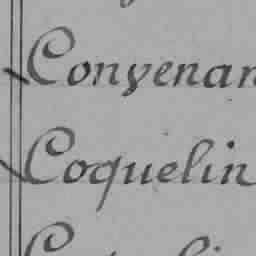 Conyenan
Coquelin